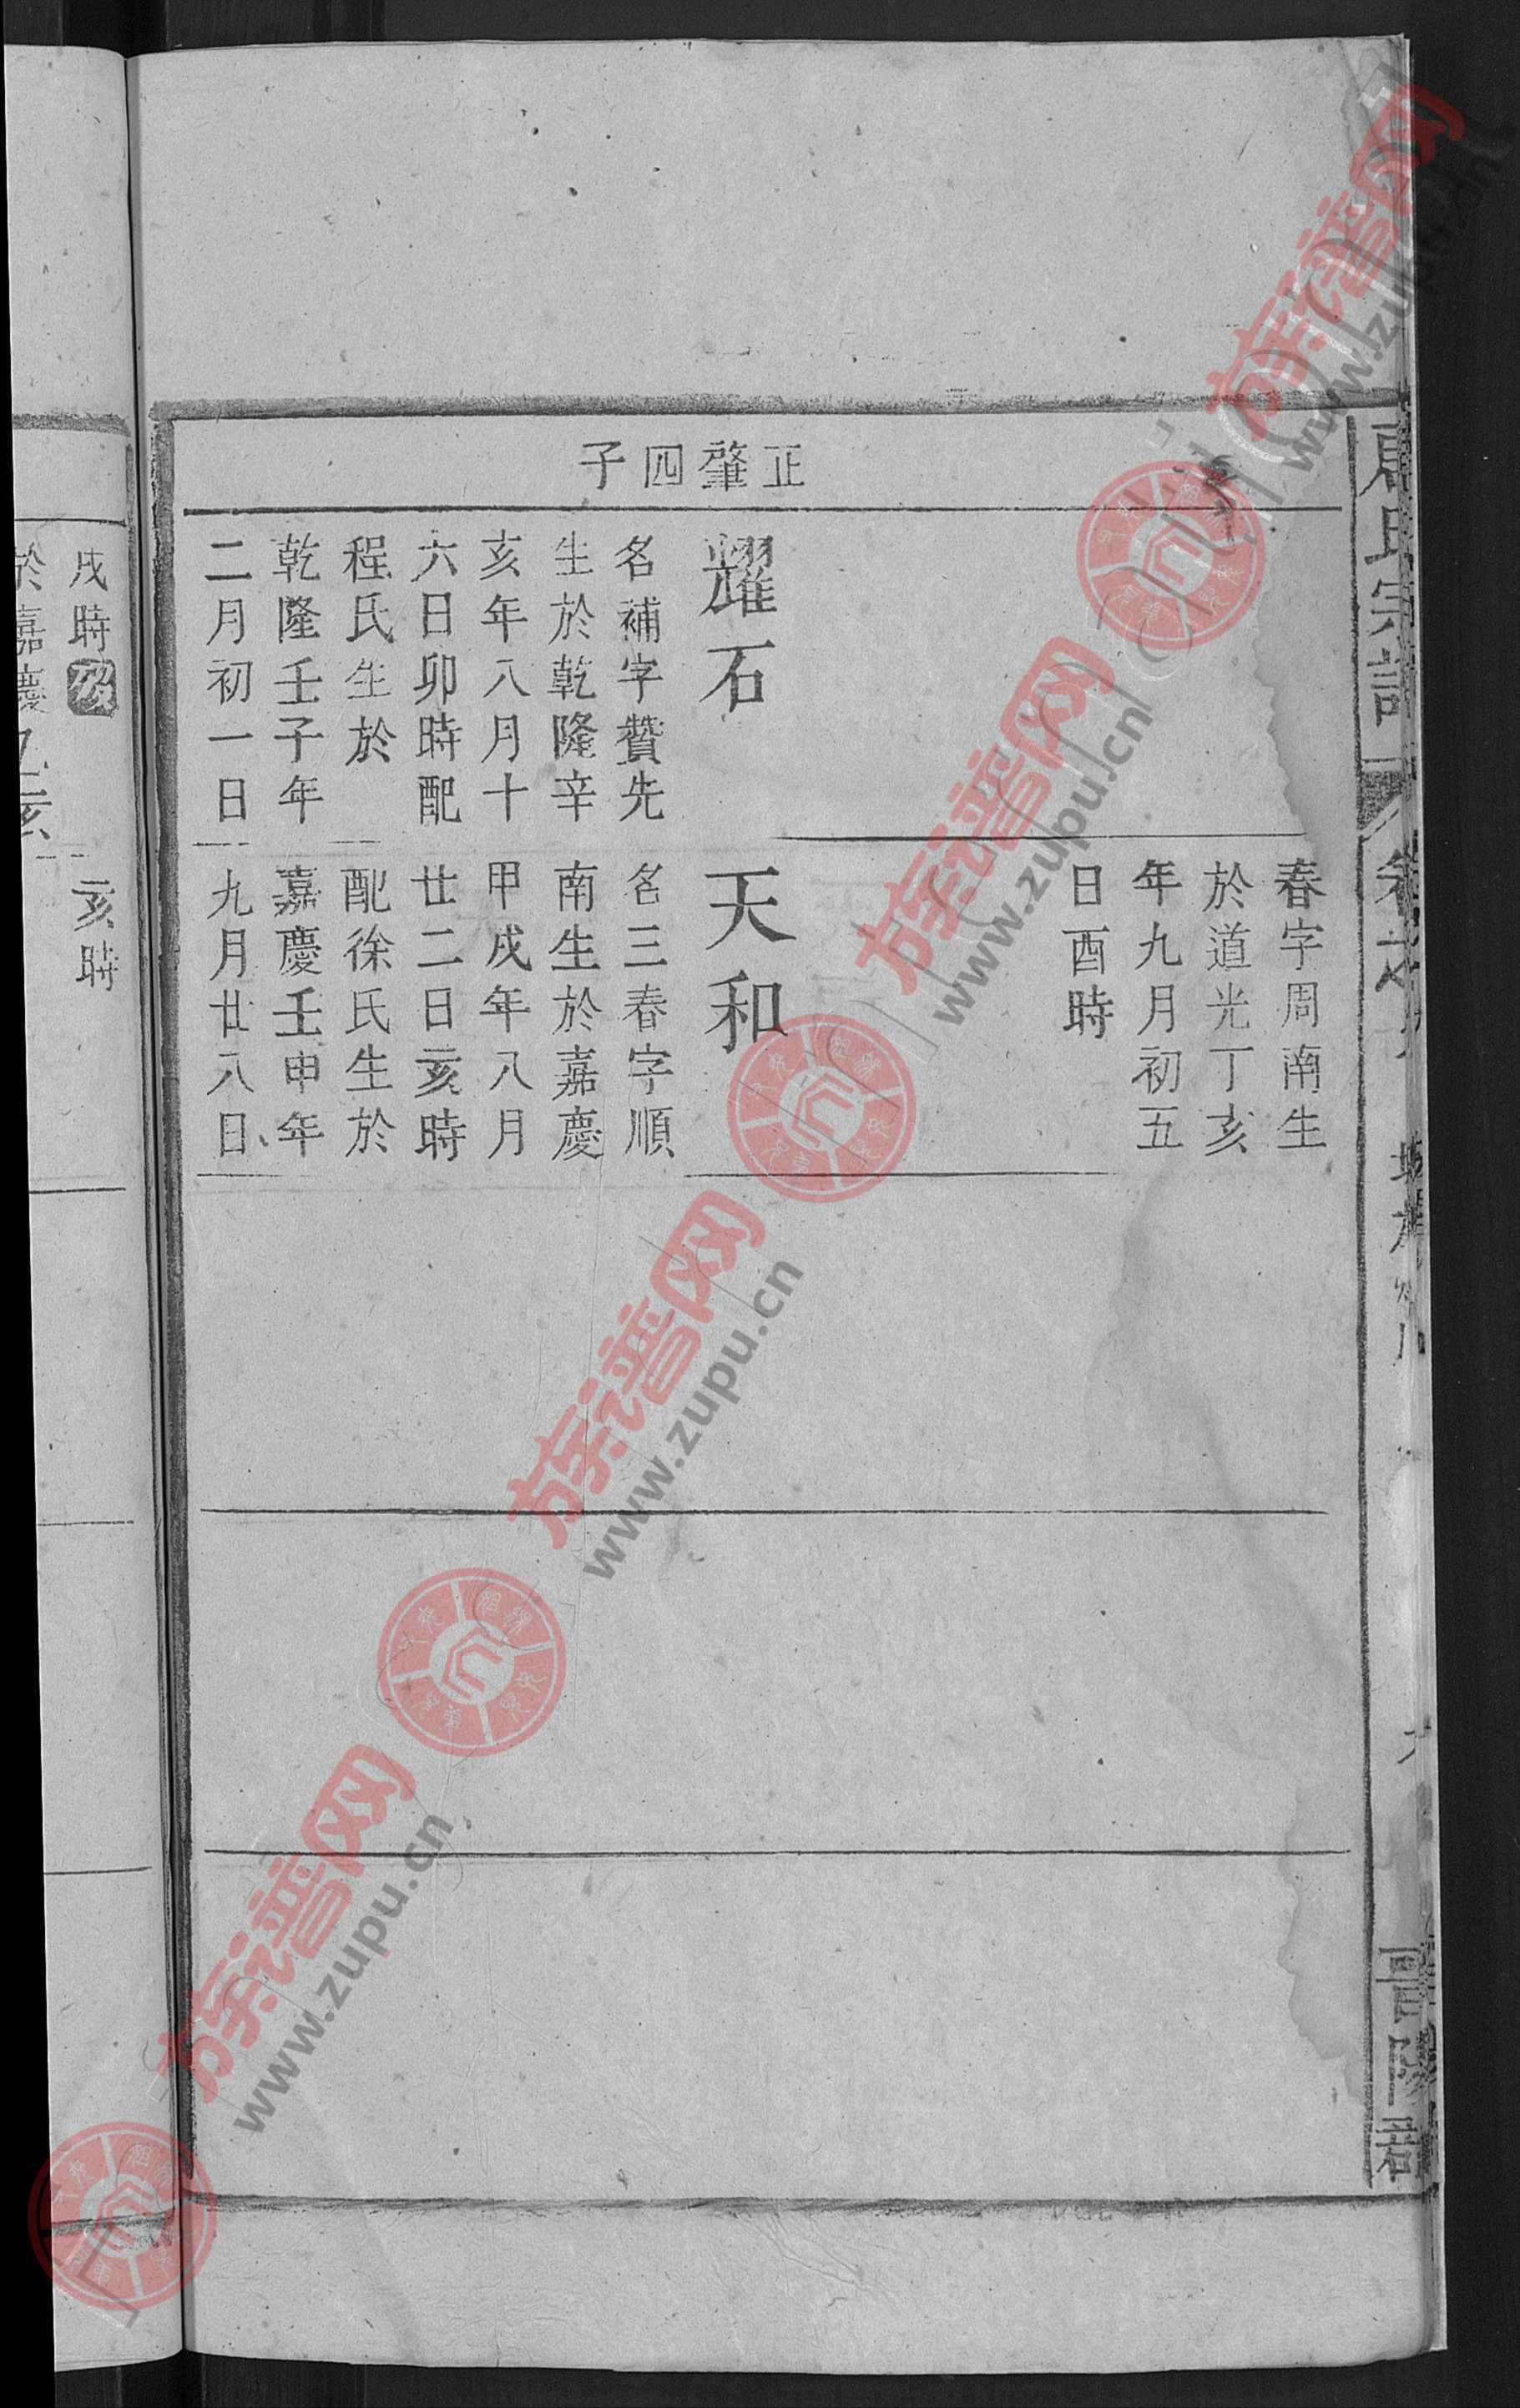 氏宗譜
卷之
晉陵郡
春字周南生
於道光丁亥
年九月初五
日酉時
正肇四子
耀石
名補字贊先
生於乾隆辛
亥年八月十
六日卯時配
程氏生於
乾隆壬子年
二月初一日
天和
名三春字順
南生於嘉慶
甲戌年八月
廿二日亥時
配徐氏生於
嘉慶壬申年
九月廿八日
戌時
亥時
於嘉慶
族谱网
www.zupu.cn
族谱网
www.zupu.cn
族谱网
www.zupu.cn
族谱网
www.zupu.cn